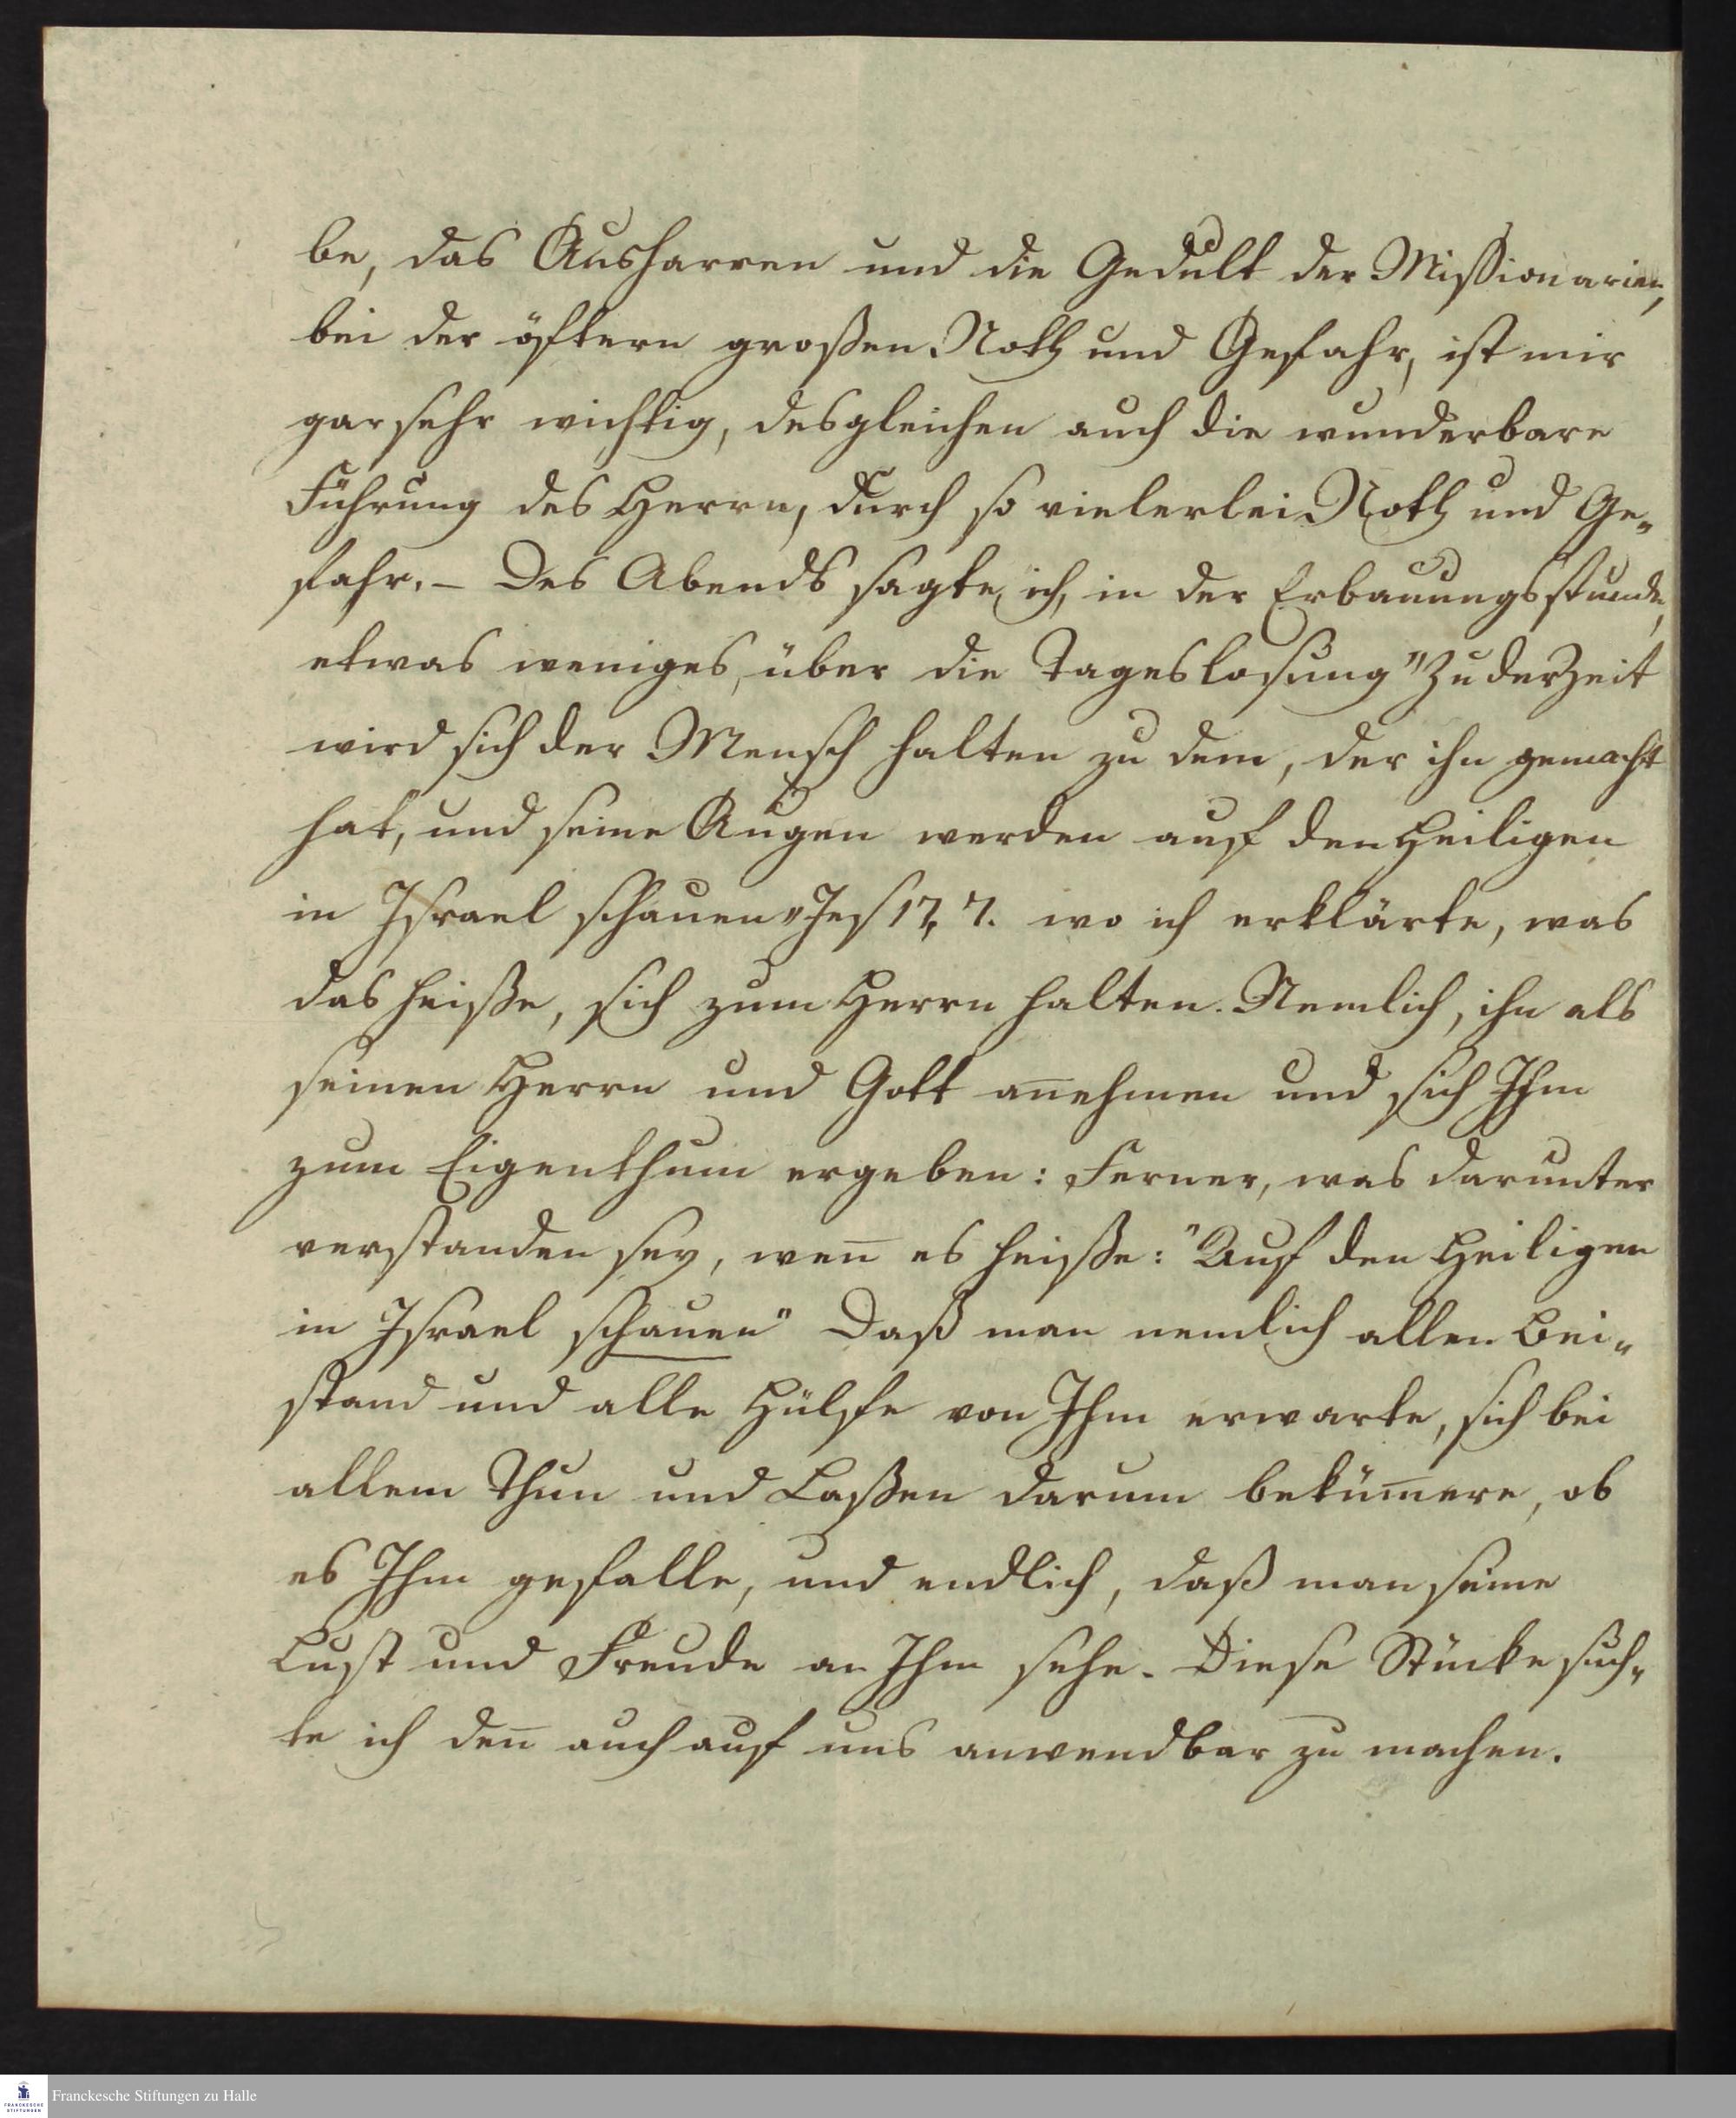 be, das Ausharren und die Gedult der Missionarien,
bei der öftern großen Noth und Gefahr, ist mir
gar sehr wichtig, desgleichen auch die wunderbare
Führung des Herrn, durch so vielerlei Noth und Ge„
fahr. – Des Abends sagte, ich, in der Erbauungsstunde,
etwas weniges, über die Tageslosung "Zu der Zeit
wird sich der Mensch halten zu dem, der ihn gemacht
hat, und seine Augen werden auf den Heiligen
in Israel schauen" Jes 17, 7. wo ich erklärte, was
das heiße, sich zum Herrn halten. Nemlich, ihn als
seinen Herrn und Gott an̄ehmen und sich Ihm
zum Eigenthum ergeben: Ferner, was darunter
verstanden sey, wen̄ es heiße: "Auf den Heiligen
in Israel schauen" Daß man nemlich allen Bei„
stand und alle Hülfe von Ihm erwarte, sich bei
allem Thun und Laßen darum bekum̄ere, ob
es Ihm gefalle, und endlich, daß man seine
Lust und Freude an Ihm sehe. Diese Stücke such„
te ich den̄ auch auf uns anwendbar zu machen.
Franckesche Stiftungen zu Halle
FRANCKESCHE
STIFTUNGEN